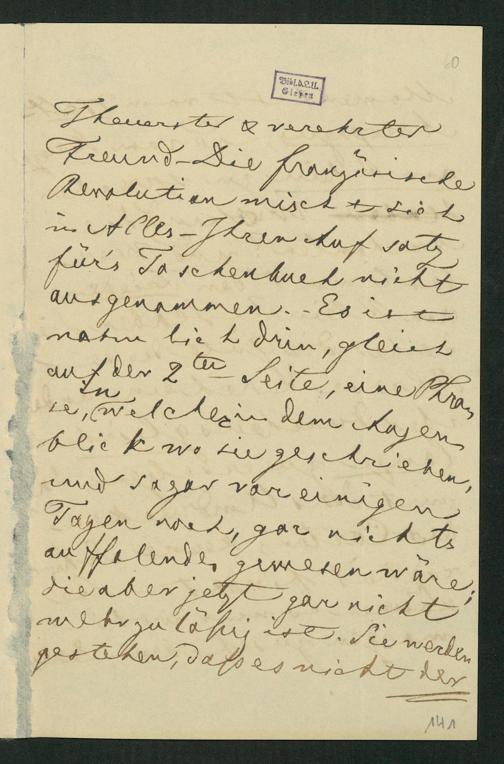 60
Bibl.d.U.
Giessen
Theuerster & verehrter
Freund – Die französische
Revolution mischt sich
in Alles – Ihren Aufsatz
für's Taschenbuch nicht
ausgenommen. – Es ist
nahmlich drin, gleich
auf der 2ten Seite, eine Phra
se, welche in dem Augen
blick wo sie geschrieben,
und sogar vor einigen
Tagen noch, gar nichts
auffallendes gewesen wäre;
die aber jetzt gar nicht
mehr zuläßig ist. Sie werden
gestehen, daß es nicht der
141